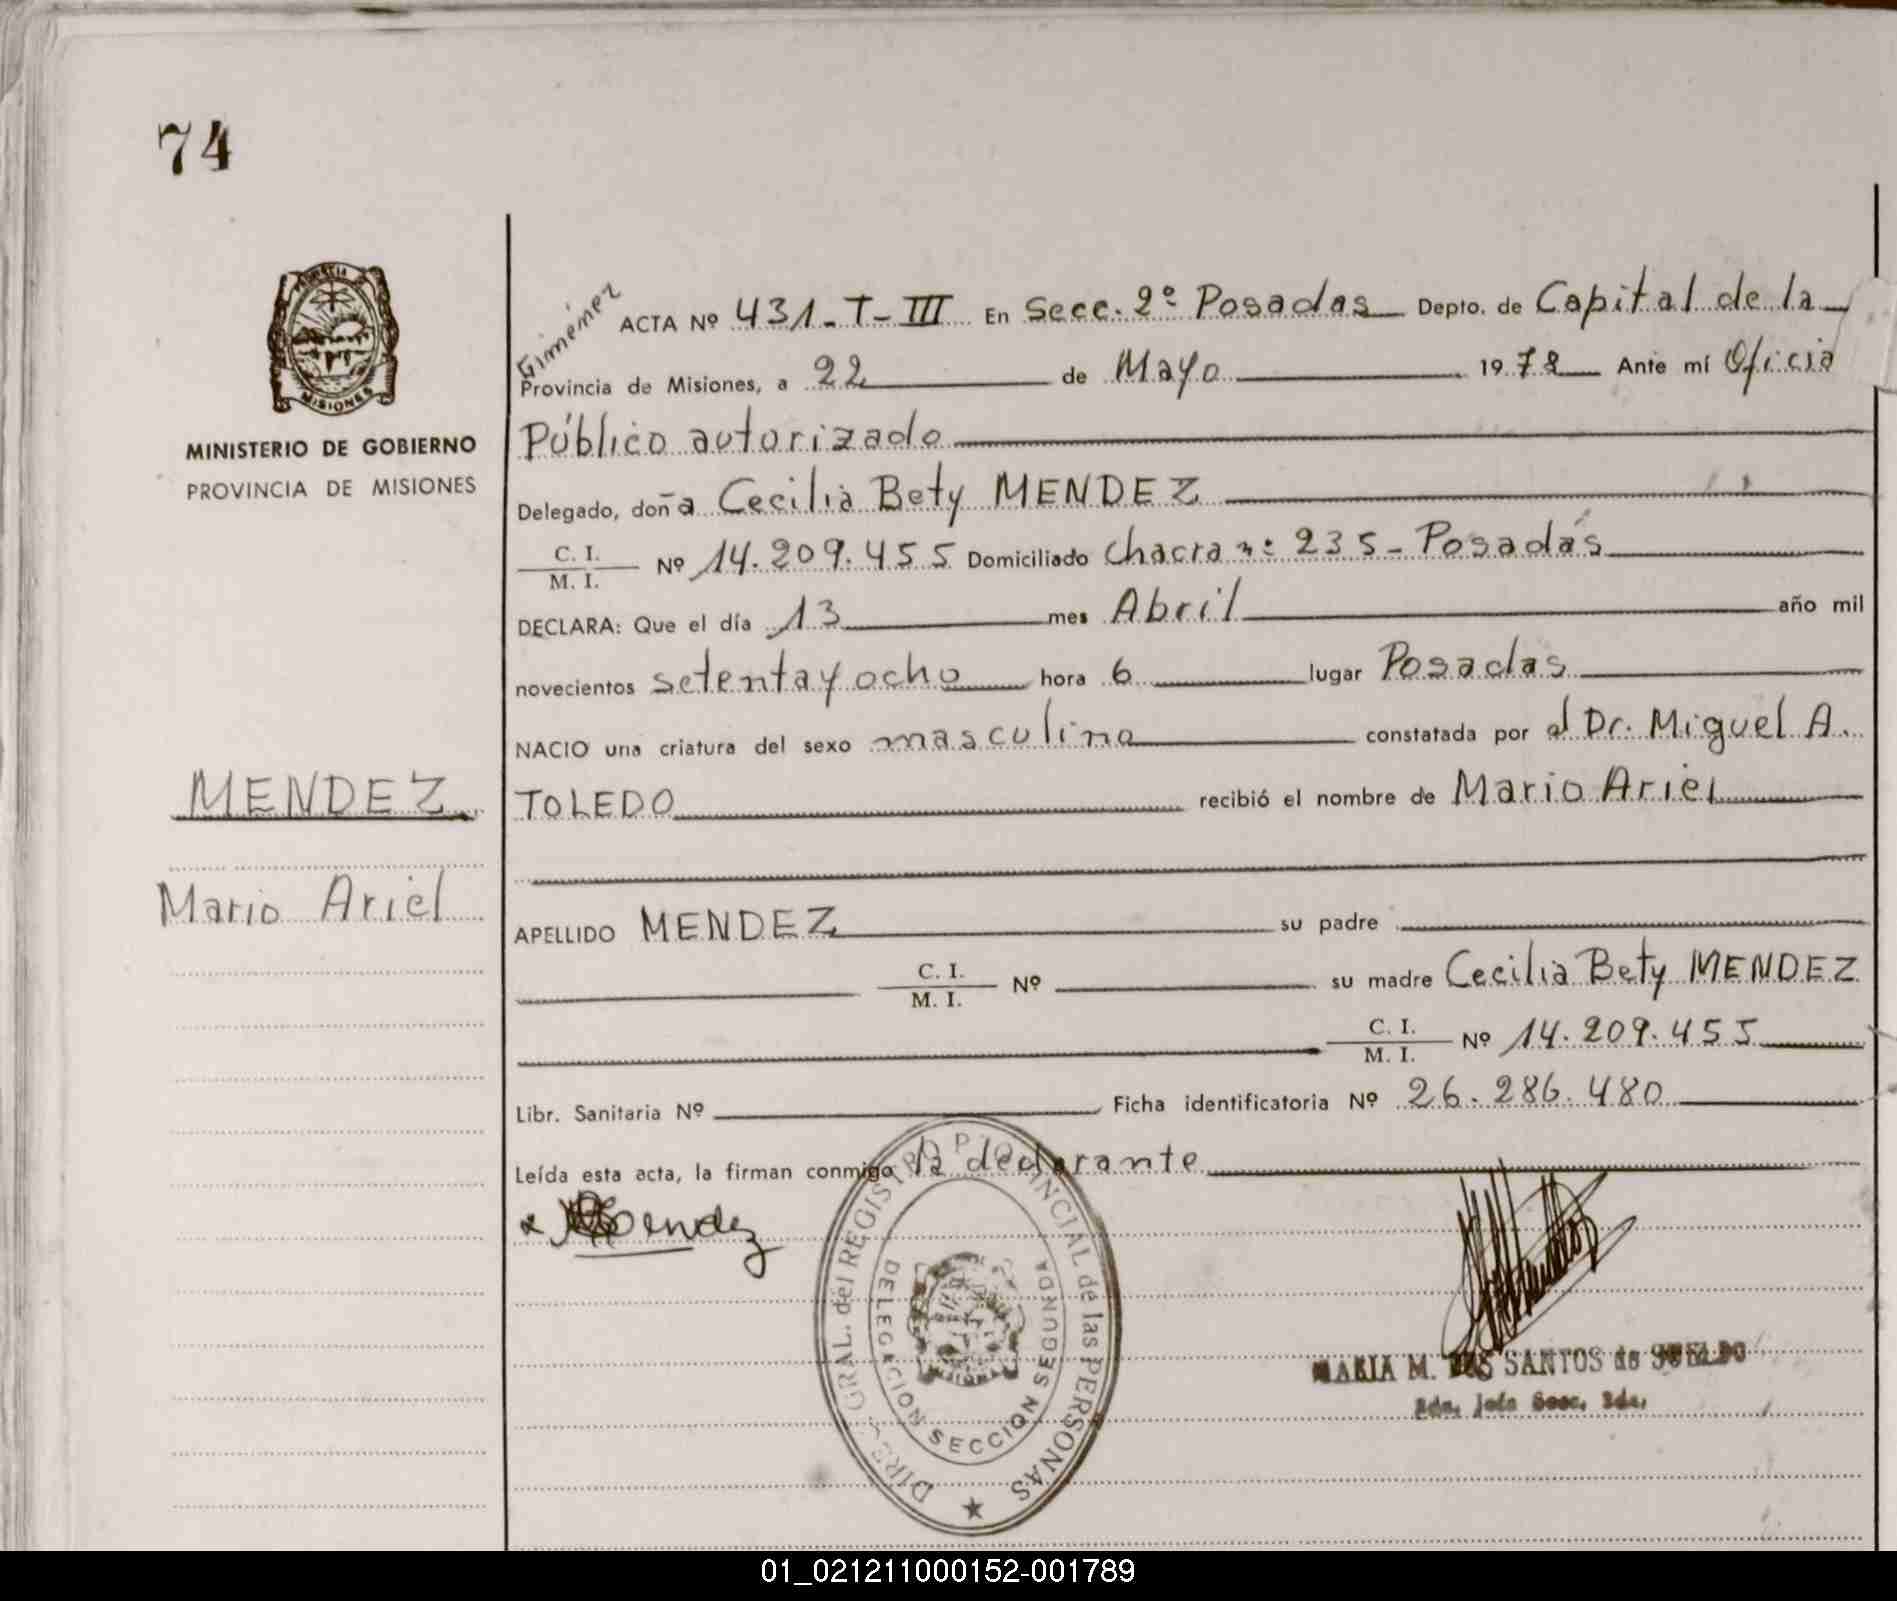 74
PROVINCIA
MISIONES
MINISTERIO DE GOBIERNO
PROVINCIA DE MISIONES
MENDEZ
Mario Ariel
Giménez
ACTA Nº 431-T-III En Secc. 2º Posadas Depto. de Capital de la
Provincia de Misiones, a 22 de Mayo 1978 Ante mí Oficia
Público autorizado
Delegado, doña Cecilia Bety MENDEZ
C. I.
M. I. Nº 14.209.455 Domiciliado Chacra nº: 235 - Posadas
DECLARA: Que el día 13 mes Abril año mil
novecientos setenta y ocho hora 6 lugar Posadas
NACIO una criatura del sexo masculino constatada por el Dr. Miguel A.
TOLEDO recibió el nombre de Mario Ariel
APELLIDO MENDEZ su padre
C. I.
M. I. Nº su madre Cecilia Bety MENDEZ
C. I.
M. I. Nº 14.209.455
Libr. Sanitaria Nº Ficha identificatoria Nº 26.286.480
Leída esta acta, la firman conmigo la declarante
Mendez
DIREC. GRAL. del REGISTRO PROVINCIAL de las PERSONAS
DELEGACION SECCION SEGUNDA
MISIONES
MARIA M. DOS SANTOS de SUELDO
Jefa Secc. 2da.
01_021211000152-001789